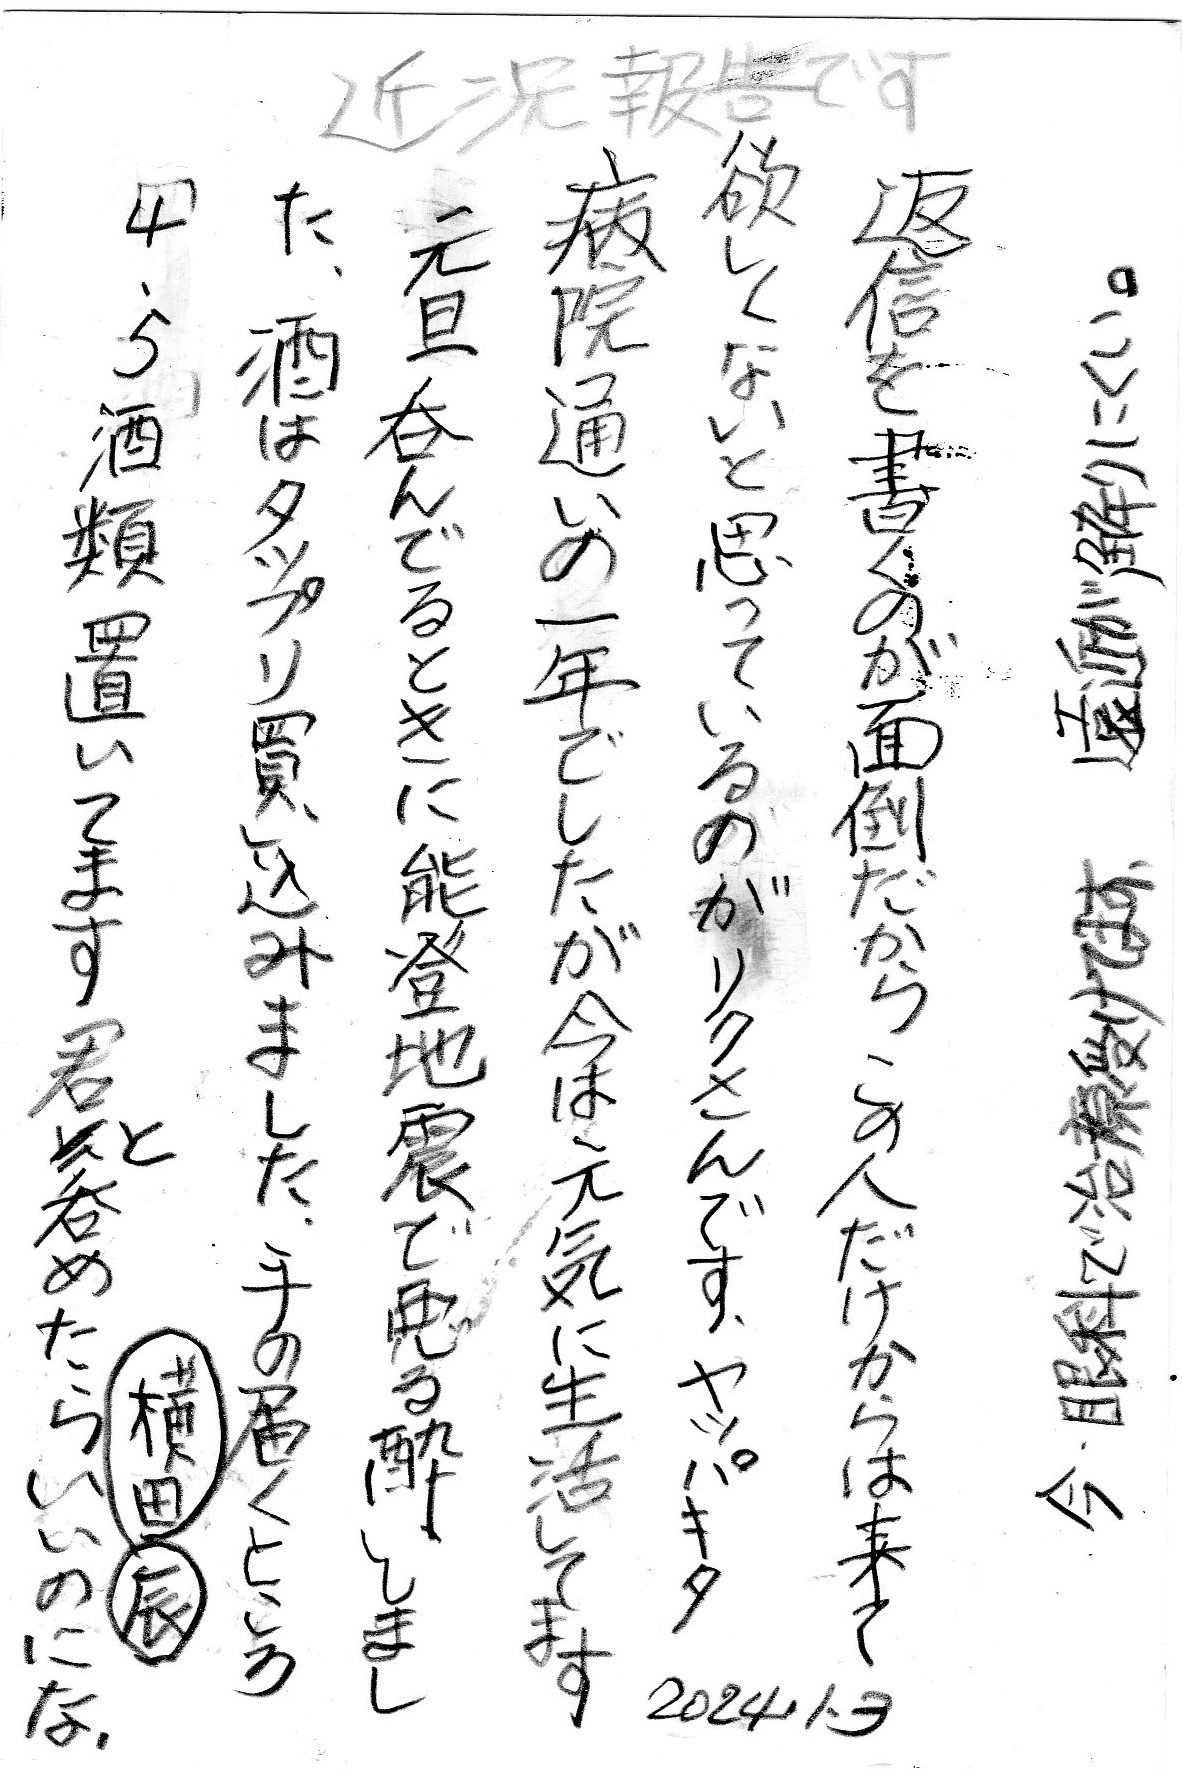 近況報告です
今眼科で治療受けてます、遠近が解りにくい。
返信を書くのが面倒だから この人だけからは来て
欲しくないと思っているのがリクさんです、ヤッパキタ
2024.1.3
病院通いの一年でしたが今は元気に生活してます
元旦呑んでるときに能登地震で悪る酔しまし
た、酒はタップリ買込みました、手の届くところ
4、5酒類置いてます君と呑めたらいいのにな.
横田
辰